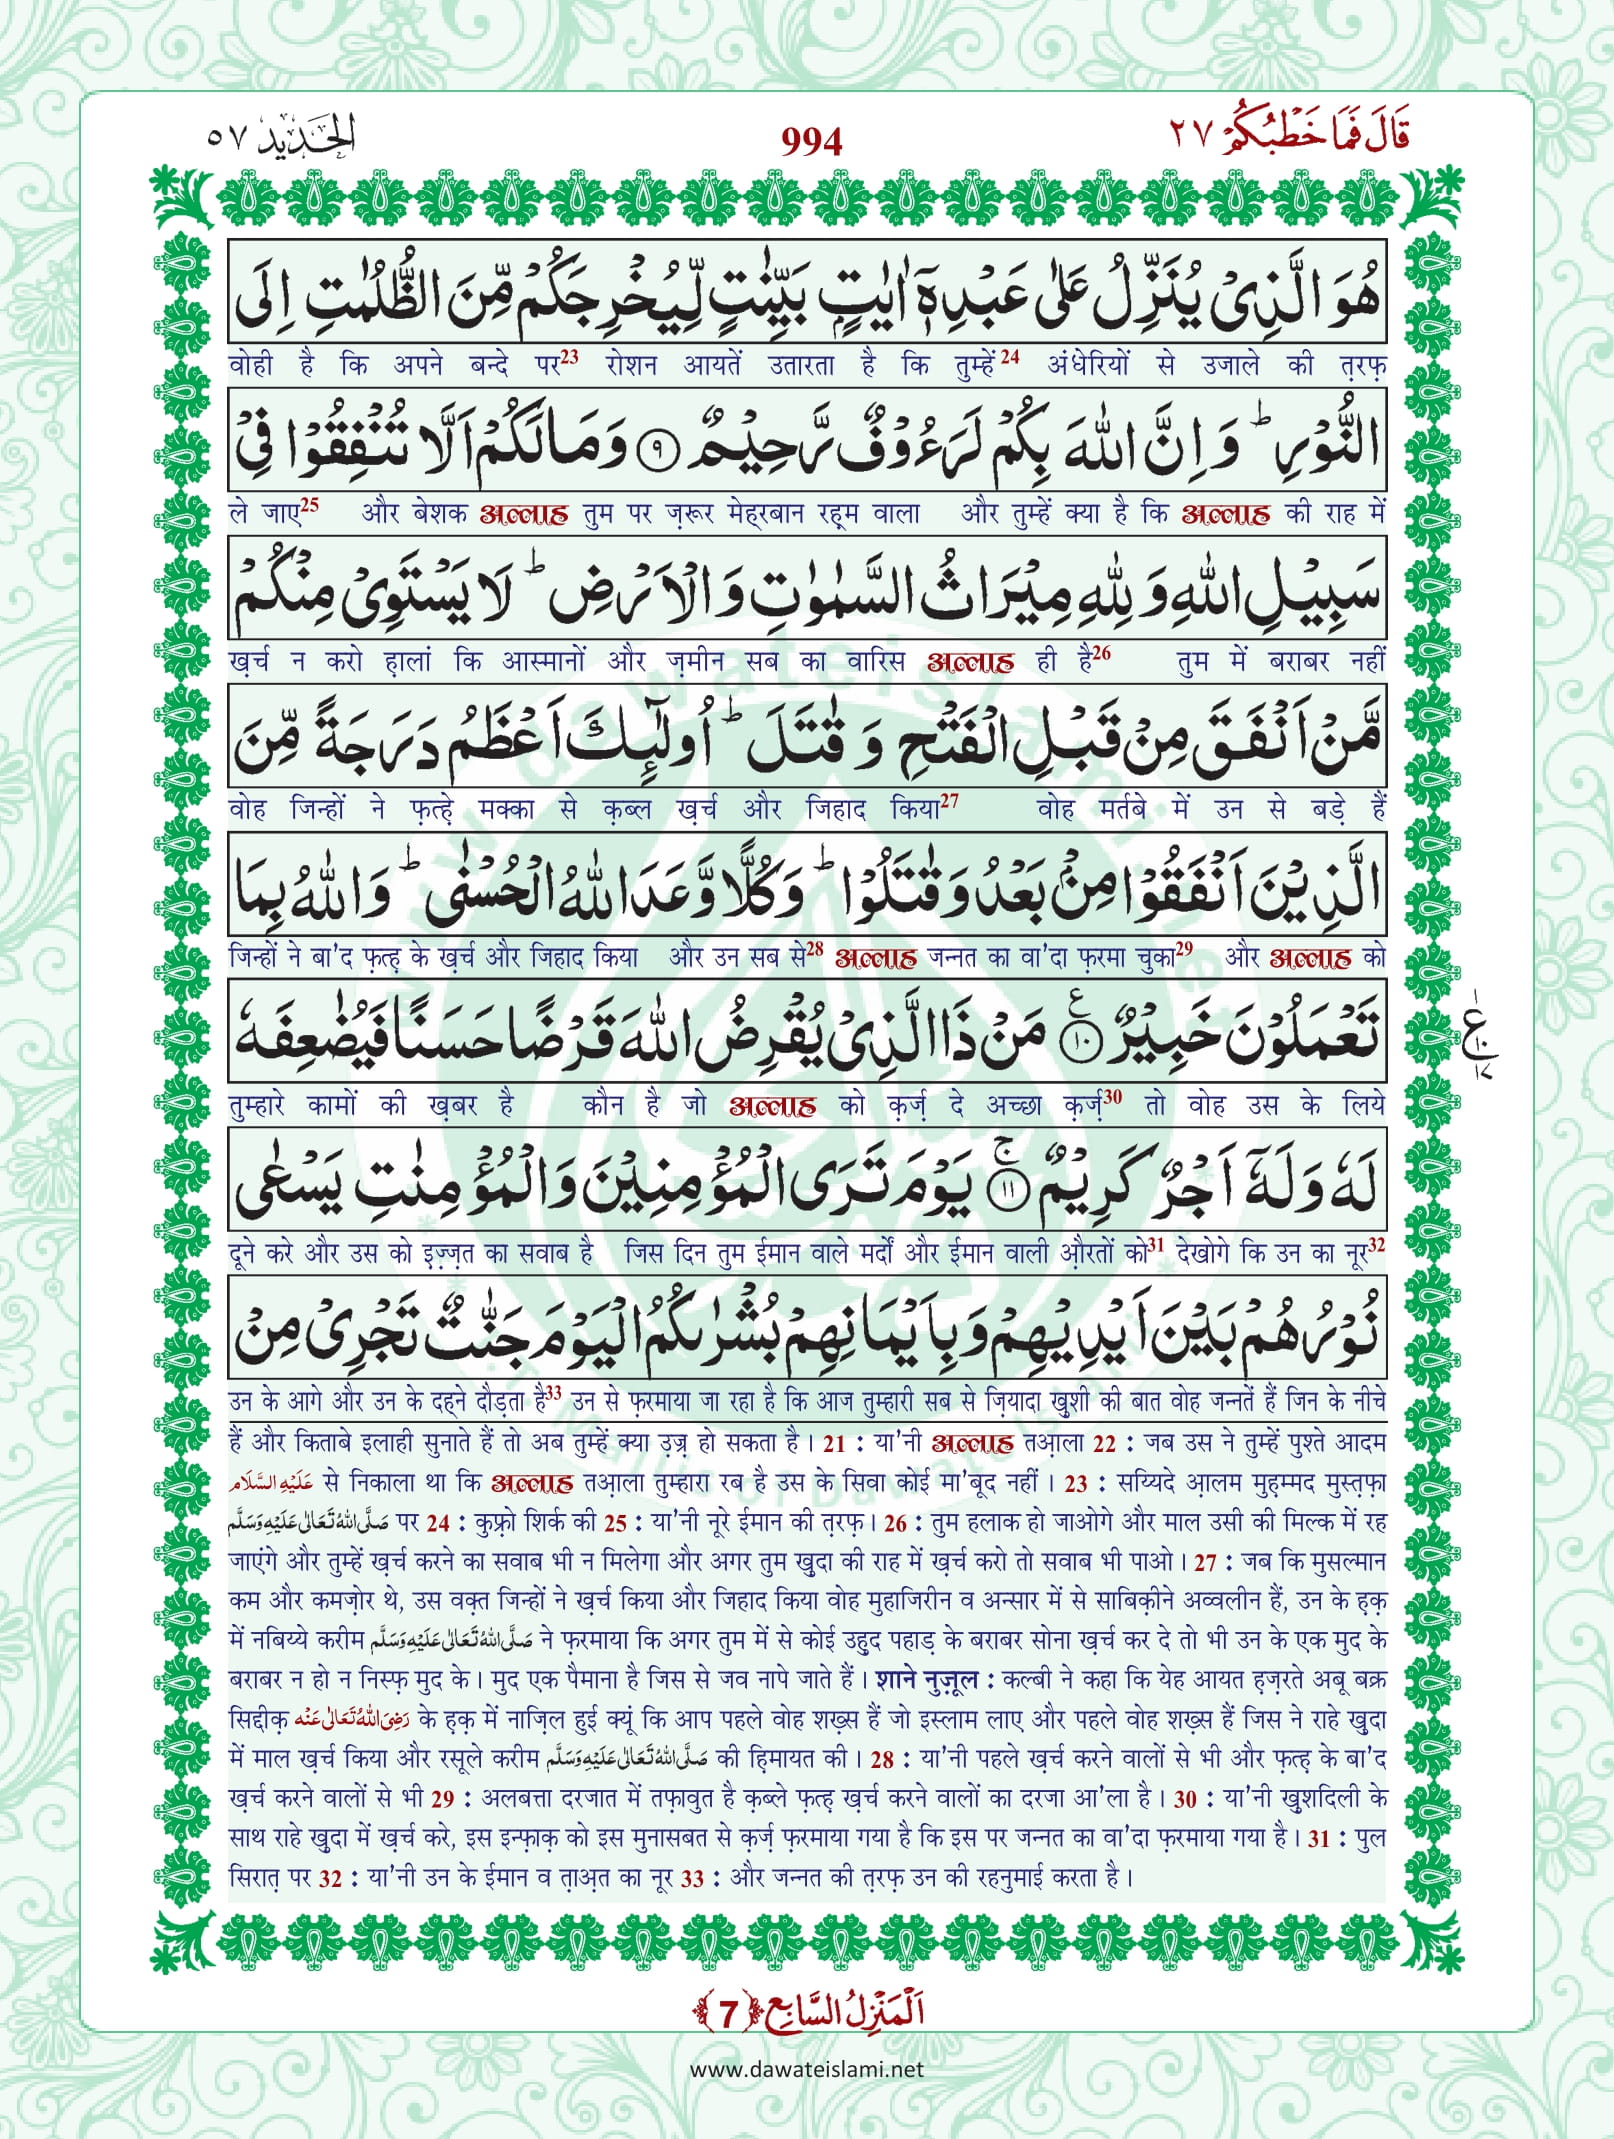 الحديد ٥٧
994
قَالَ فَمَا خَطْبُكُمْ ٢٧
هُوَ الَّذِیْ یُنَزِّلُ عَلٰی عَبْدِهٖۤ اٰیٰتٍۭ بَیِّنٰتٍ لِّیُخْرِجَكُمْ مِّنَ الظُّلُمٰتِ اِلَی
वोही है कि अपने बन्दे पर23 रोशन आयतें उतारता है कि तुम्हें24 अंधेरियों से उजाले की त़रफ़
النُّوْرِؕ وَ اِنَّ اللّٰهَ بِكُمْ لَرَءُوْفٌ رَّحِیْمٌ ﴿۹﴾ وَ مَا لَكُمْ اَلَّا تُنْفِقُوْا فِیْ
ले जाए25 और बेशक अल्लाह तुम पर ज़रूर मेह़रबान रह़्म वाला और तुम्हें क्या है कि अल्लाह की राह में
سَبِیْلِ اللّٰهِ وَ لِلّٰهِ مِیْرَاثُ السَّمٰوٰتِ وَ الْاَرْضِؕ لَا یَسْتَوِیْ مِنْكُمْ
ख़र्च न करो ह़ालां कि आस्मानों और ज़मीन सब का वारिस अल्लाह ही है26 तुम में बराबर नहीं
مَّنْ اَنْفَقَ مِنْ قَبْلِ الْفَتْحِ وَ قٰتَلَؕ اُولٰٓىِٕكَ اَعْظَمُ دَرَجَةً مِّنَ
वोह जिन्हों ने फ़त्ह़े मक्का से क़ब्ल ख़र्च और जिहाद किया27 वोह मर्तबे में उन से बड़े हैं
الَّذِیْنَ اَنْفَقُوْا مِنْۢ بَعْدُ وَ قٰتَلُوْاؕ وَ كُلًّا وَّعَدَ اللّٰهُ الْحُسْنٰیؕ وَ اللّٰهُ بِمَا
जिन्हों ने बा'द फ़त्ह़ के ख़र्च और जिहाद किया और उन सब से28 अल्लाह जन्नत का वा'दा फ़रमा चुका29 और अल्लाह को
تَعْمَلُوْنَ خَبِیْرٌ ﴿۱۰﴾ع مَنْ ذَا الَّذِیْ یُقْرِضُ اللّٰهَ قَرْضًا حَسَنًا فَیُضٰعِفَهٗ
ع ١٠ ١٧
तुम्हारे कामों की ख़बर है कौन है जो अल्लाह को क़र्ज़ दे अच्छा क़र्ज़30 तो वोह उस के लिये
لَهٗ وَ لَهٗۤ اَجْرٌ كَرِیْمٌ ﴿۱۱﴾ۚ یَوْمَ تَرَی الْمُؤْمِنِیْنَ وَ الْمُؤْمِنٰتِ یَسْعٰی
दूने करे और उस को इ़ज़्ज़त का सवाब है जिस दिन तुम ईमान वाले मर्दों और ईमान वाली औ़रतों को31 देखोगे कि उन का नूर32
نُوْرُهُمْ بَیْنَ اَیْدِیْهِمْ وَ بِاَیْمَانِهِمْ بُشْرٰىكُمُ الْیَوْمَ جَنّٰتٌ تَجْرِیْ مِنْ
उन के आगे और उन के दहने दौड़ता है33 उन से फ़रमाया जा रहा है कि आज तुम्हारी सब से ज़ियादा ख़ुशी की बात वोह जन्नतें हैं जिन के नीचे
हैं और किताबे इलाही सुनाते हैं तो अब तुम्हें क्या उ़ज़्र हो सकता है। 21 : या'नी अल्लाह तआ़ला 22 : जब उस ने तुम्हें पुश्ते आदम
عَلَیْهِ السَّلَام से निकाला था कि अल्लाह तआ़ला तुम्हारा रब है उस के सिवा कोई मा'बूद नहीं। 23 : सय्यिदे आ़लम मुह़म्मद मुस्त़फ़ा
صَلَّی اللّٰهُ تَعَالٰی عَلَیْهِ وَسَلَّم पर 24 : कुफ़्रो शिर्क की 25 : या'नी नूरे ईमान की त़रफ़। 26 : तुम हलाक हो जाओगे और माल उसी की मिल्क में रह
जाएंगे और तुम्हें ख़र्च करने का सवाब भी न मिलेगा और अगर तुम ख़ुदा की राह में ख़र्च करो तो सवाब भी पाओ। 27 : जब कि मुसल्मान
कम और कमज़ोर थे, उस वक़्त जिन्हों ने ख़र्च किया और जिहाद किया वोह मुहाजिरीन व अन्सार में से साबिक़ीने अव्वलीन हैं, उन के ह़क़
में नबिय्ये करीम صَلَّی اللّٰهُ تَعَالٰی عَلَیْهِ وَسَلَّم ने फ़रमाया कि अगर तुम में से कोई उह़ुद पहाड़ के बराबर सोना ख़र्च कर दे तो भी उन के एक मुद के
बराबर न हो न निस्फ़ मुद के। मुद एक पैमाना है जिस से जव नापे जाते हैं। शाने नुज़ूल : कल्बी ने कहा कि येह आयत ह़ज़रते अबू बक्र
सिद्दीक़ رَضِیَ اللّٰهُ تَعَالٰی عَنْه के ह़क़ में नाज़िल हुई क्यूं कि आप पहले वोह शख़्स हैं जो इस्लाम लाए और पहले वोह शख़्स हैं जिस ने राहे ख़ुदा
में माल ख़र्च किया और रसूले करीम صَلَّی اللّٰهُ تَعَالٰی عَلَیْهِ وَسَلَّم की ह़िमायत की। 28 : या'नी पहले ख़र्च करने वालों से भी और फ़त्ह़ के बा'द
ख़र्च करने वालों से भी 29 : अलबत्ता दरजात में तफ़ावुत है क़ब्ले फ़त्ह़ ख़र्च करने वालों का दरजा आ'ला है। 30 : या'नी ख़ुशदिली के
साथ राहे ख़ुदा में ख़र्च करे, इस इन्फ़ाक़ को इस मुनासबत से क़र्ज़ फ़रमाया गया है कि इस पर जन्नत का वा'दा फ़रमाया गया है। 31 : पुल
सिरात़ पर 32 : या'नी उन के ईमान व त़ाअ़त का नूर 33 : और जन्नत की त़रफ़ उन की रहनुमाई करता है।
اَلْمَنْزِلُ السَّابِع ﴿7﴾
www.dawateislami.net